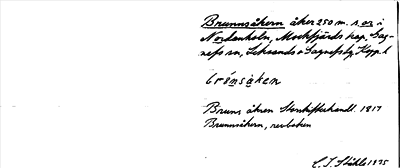 Brunnsåkern åker 250 m. s. om i
Nordanholn, Mockfjärds kap, Gag-
nefs sn, Leksands o Gagnefs tg, Kopp. l.
brónsåken
Bruns åkren Storskifteshandl. 1817
Brunnsåkern, renboken
C. I. Ståhle 1935